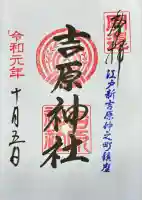 奉拝
江戸新吉原仲之町鎮座
吉原神社
令和元年
十月五日